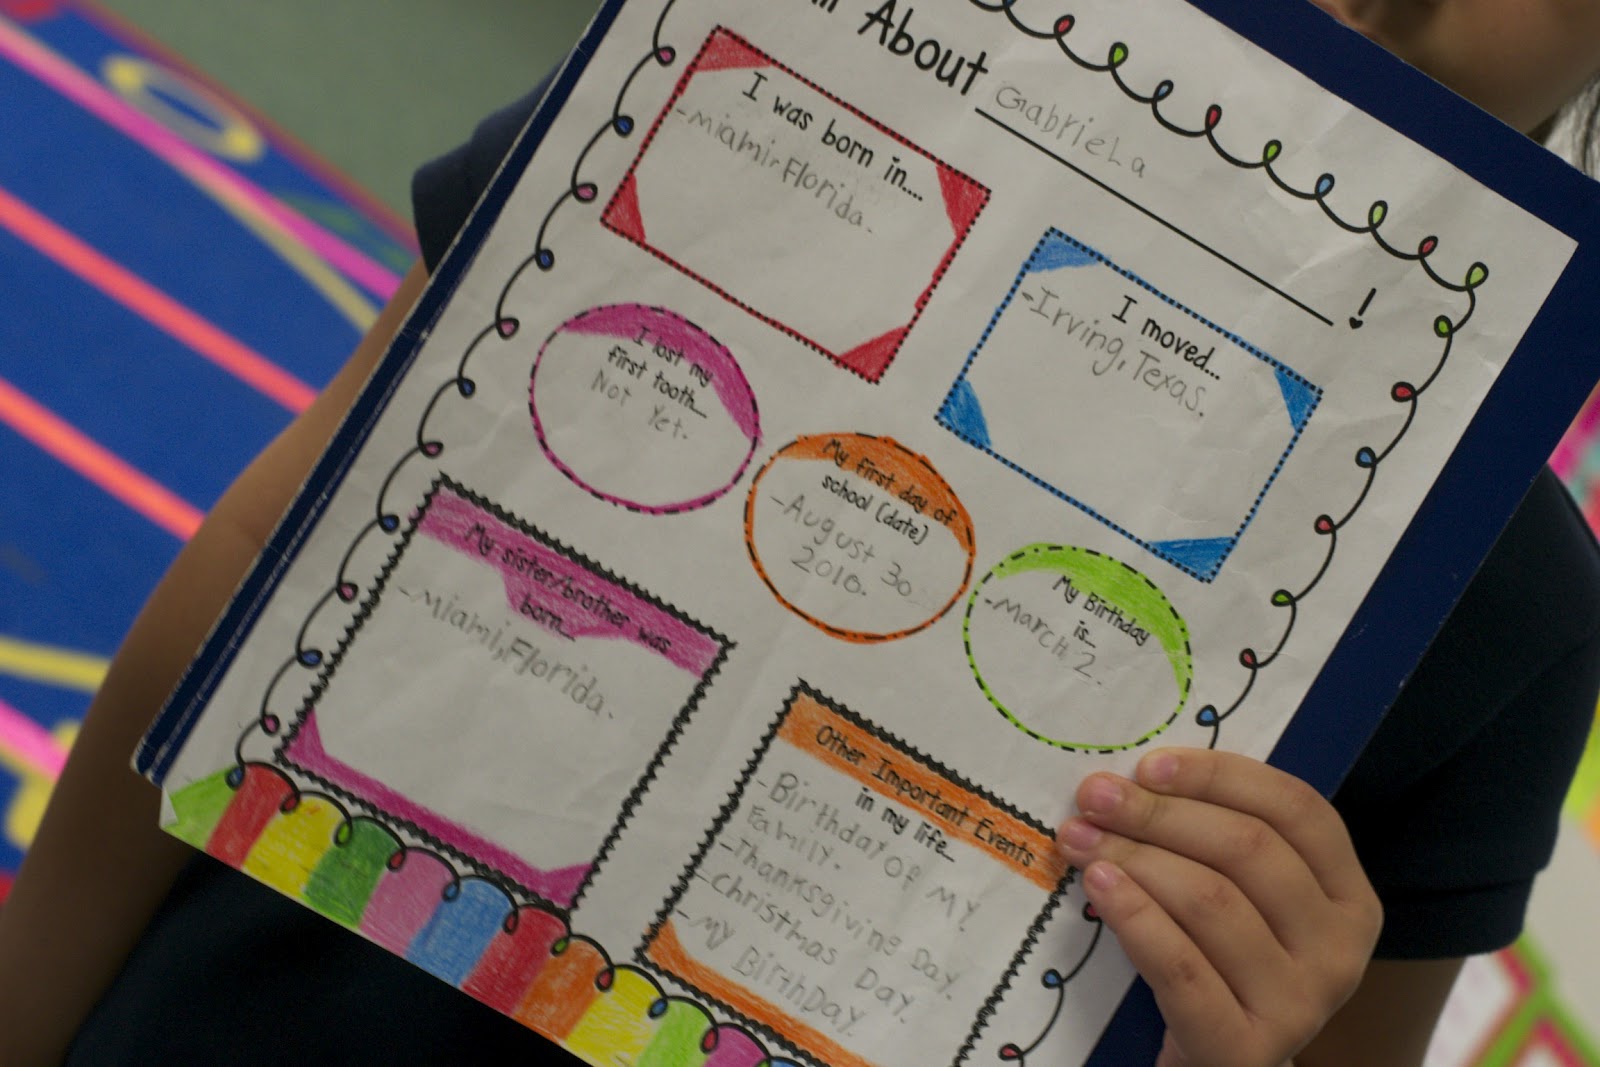 All About Gabriela !
I was born in....
-Miami, Florida.
I moved...
-Irving, Texas.
I lost my
first tooth...
Not Yet.
My first day of
school (date)
-August 30
2010.
My Birthday
is...
-March 2.
My sister/brother was
born...
-Miami, Florida.
Other Important Events
in my life...
-Birthday Of My
Family.
-Thanksgiving Day.
-Christmas Day.
-My Birthday.